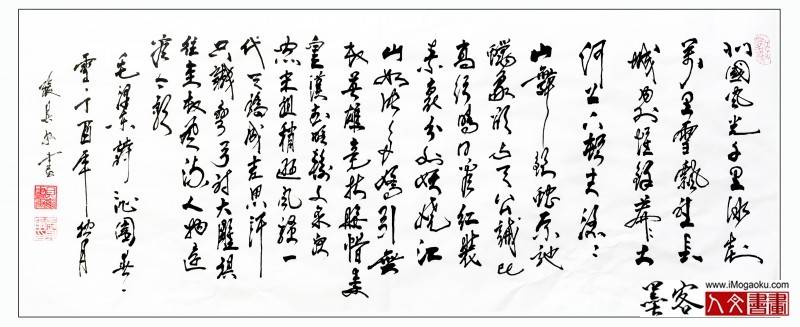 北國風光千里冰封
萬里雪飄望長
城内外惟餘莽莽大
河上下頓失滔滔
山舞銀蛇原馳
蠟象欲与天公試比
高須晴日看紅裝
素裹分外妖嬈江
山如此多嬌引無
數英雄競折腰惜秦
皇漢武略輸文采唐
宗宋祖稍遜風騷一
代天驕成吉思汗
只識彎弓射大雕俱
往矣數風流人物還
看今朝
毛澤東詩沁園春
雪丁酉年月
書
www.iMogaoku.com
墨客
人文書畫